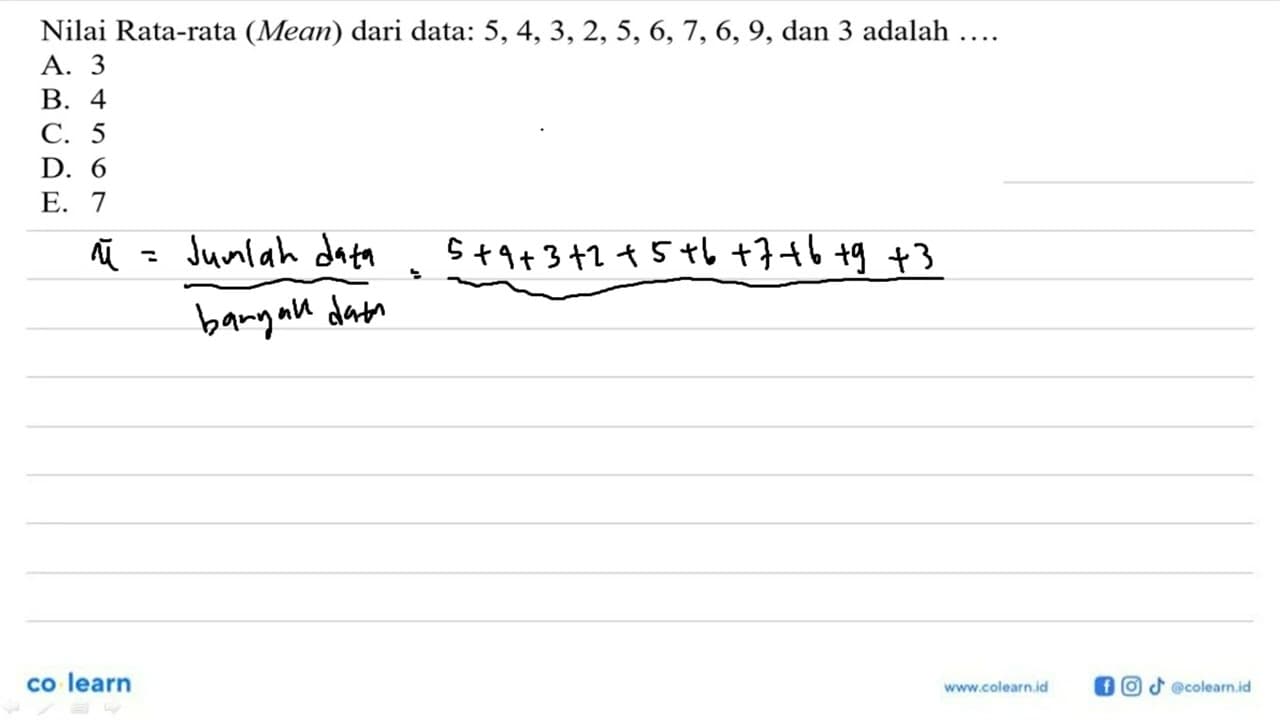 Nilai Rata-rata (Mean) dari data: 5, 4, 3, 2, 5, 6, 7, 6, 9, dan 3 adalah ....
A. 3
B. 4
C. 5
D. 6
E. 7
x̄ = Jumlah data / banyak data = 5+4+3+2+5+6+7+6+9+3
co learn
www.colearn.id
@colearn.id